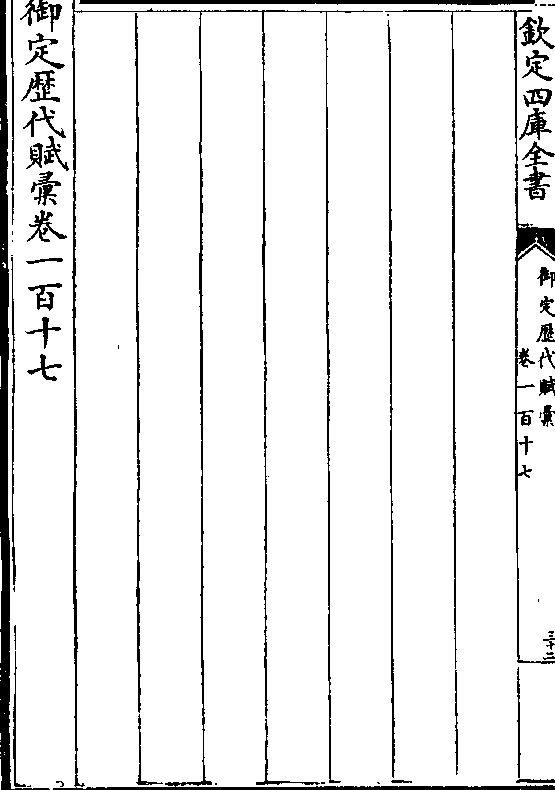 欽定四庫全書
御定歴代賦彙
卷一百十七
三十二
御定歴代賦彙卷一百十七